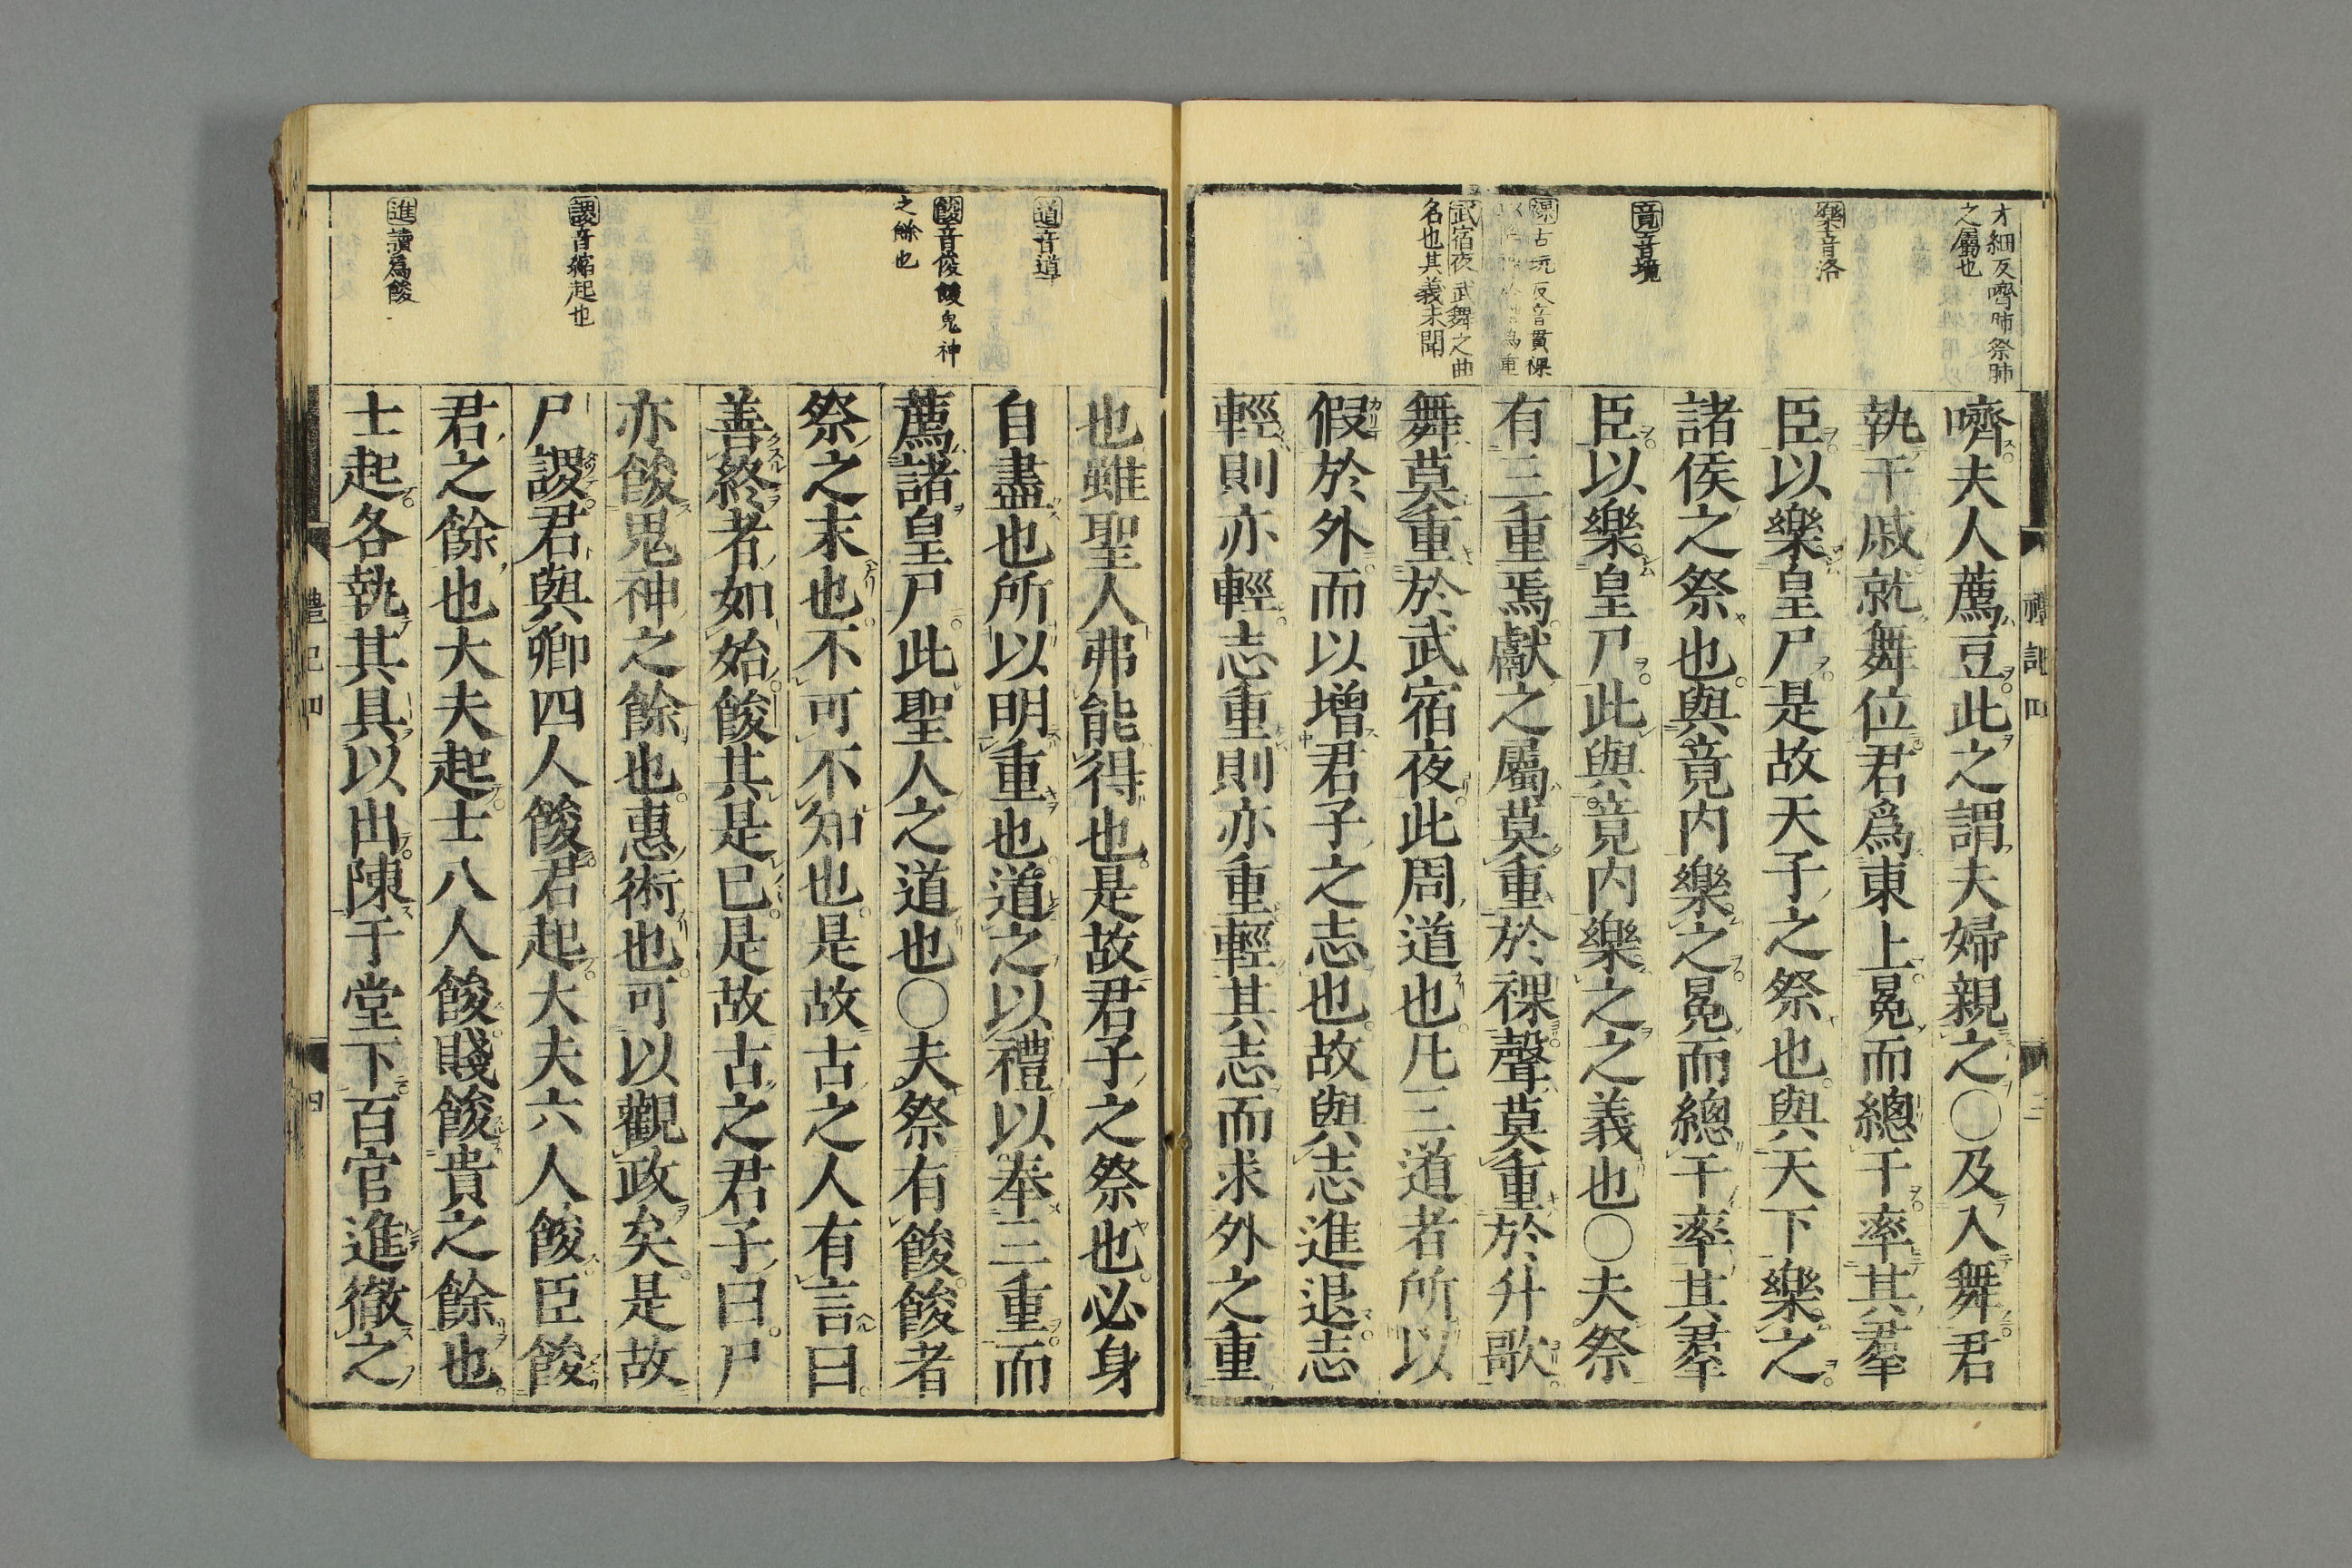 才細反嚌肺祭肺
之屬也
樂音洛
竟音境
祼古玩反音貫祼
武宿夜武舞之曲
名也其義未聞
嚌夫人薦豆此之謂夫婦親之〇及入舞君
執干戚就舞位君爲東上冕而總干率其羣
臣以樂皇尸是故天子之祭也與天下樂之
諸侯之祭也與竟内樂之冕而總干率其羣
臣以樂皇尸此與竟内樂之之義也〇夫祭
有三重焉獻之屬莫重於祼聲莫重於升歌
舞莫重於武宿夜此周道也凡三道者所以
假於外而以增君子之志也故與志進退志
輕則亦輕志重則亦重輕其志而求外之重
禮記四
三
道音道
餕音俊餕鬼神
之餘也
謖音縮起也
進讀爲餕
也雖聖人弗能得也是故君子之祭也必身
自盡也所以明重也道之以禮以奉三重而
薦諸皇尸此聖人之道也〇夫祭有餕餕者
祭之末也不可不知也是故古之人有言曰
善終者如始餕其是已是故古之君子曰尸
亦餕鬼神之餘也惠術也可以觀政矣是故
尸謖君與卿四人餕君起大夫六人餕臣餕
君之餘也大夫起士八人餕賤餕貴之餘也
士起各執其具以出陳于堂下百官進徹之
禮記四
四